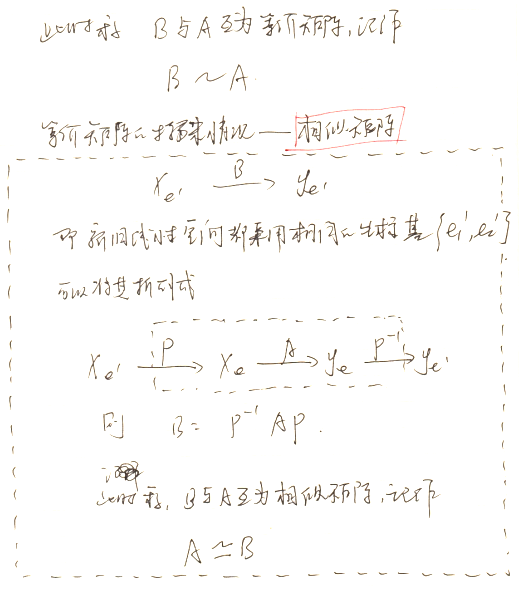 此时称 B与A互为等价矩阵,记作
B ~ A.
等价矩阵的特殊情况——相似矩阵
Xe' B→ ye'
即 新旧线性空间都采用相同的坐标基{e1',e2'}
可以将其拆列成
Xe' P→ Xe A→ ye P⁻¹→ ye'
则 B = P⁻¹AP.
此时称, B与A互为相似矩阵,记作
A ≃ B